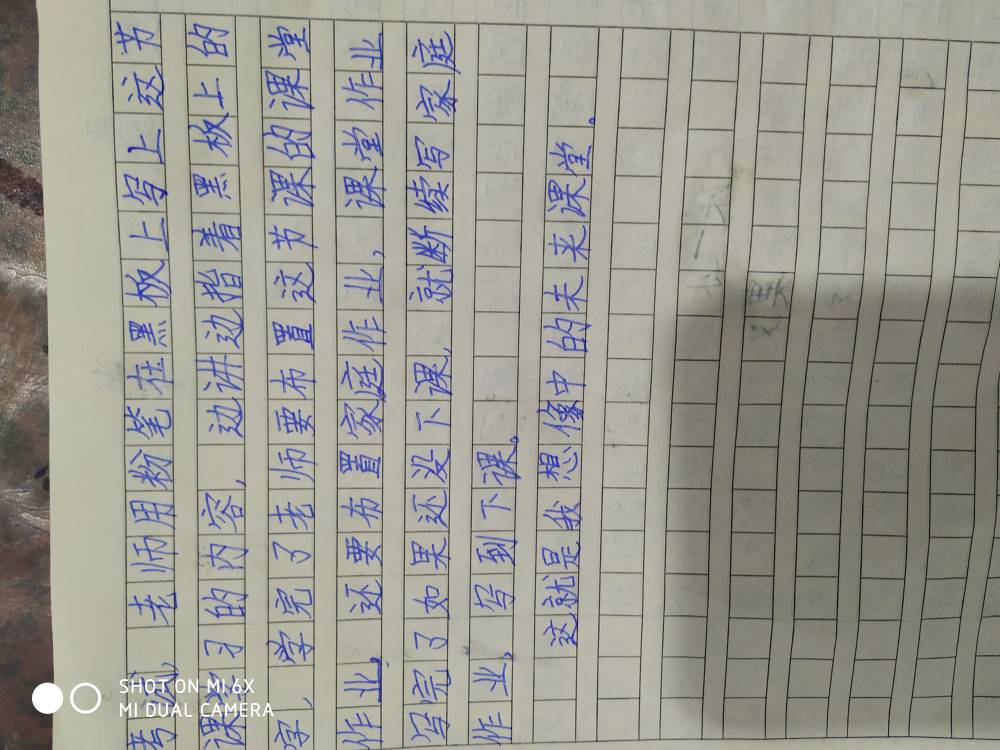 考试，老师用粉笔在黑板上写上这节
课学习的内容，边讲边指着黑板上的
字，字完了老师要布置这节课的课堂
作业。还要布置家庭作业，课堂作业
写完了如果还没下课，就断续写家庭
作业，写到下课。
这就是我想像中的未来课堂。
SHOT ON MI 6X
MI DUAL CAMERA